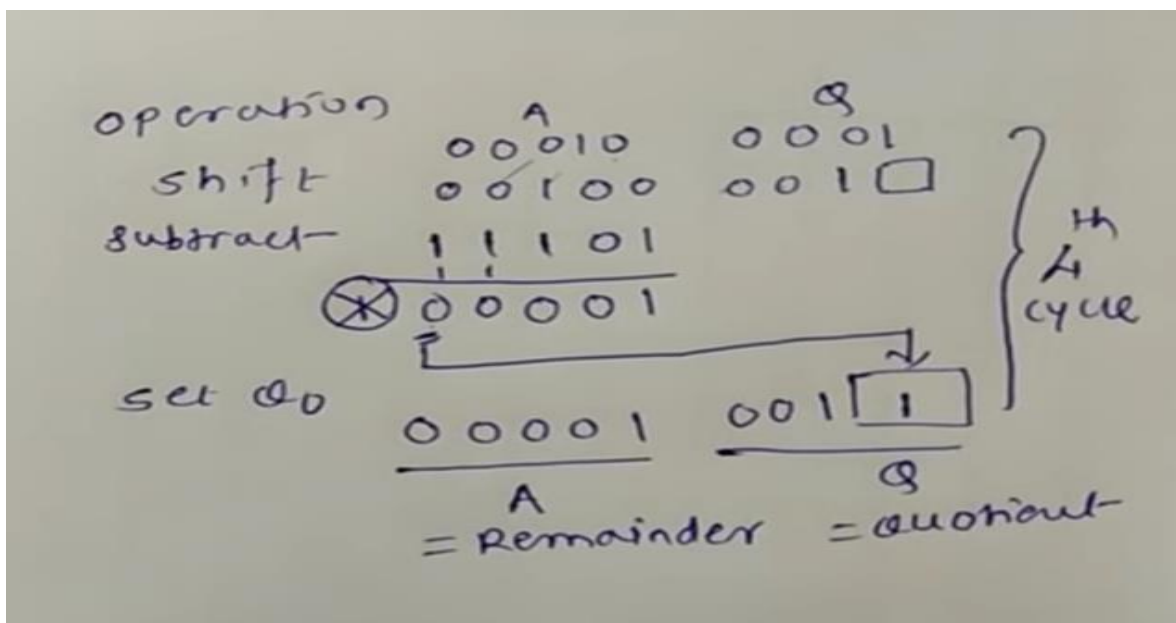 operation A Q
00010 0001
shift 00100 001□
subtract 11101
1 1
00001
set Q0 00001 001 1
A Q
= Remainder = Quotient
4th
cycle